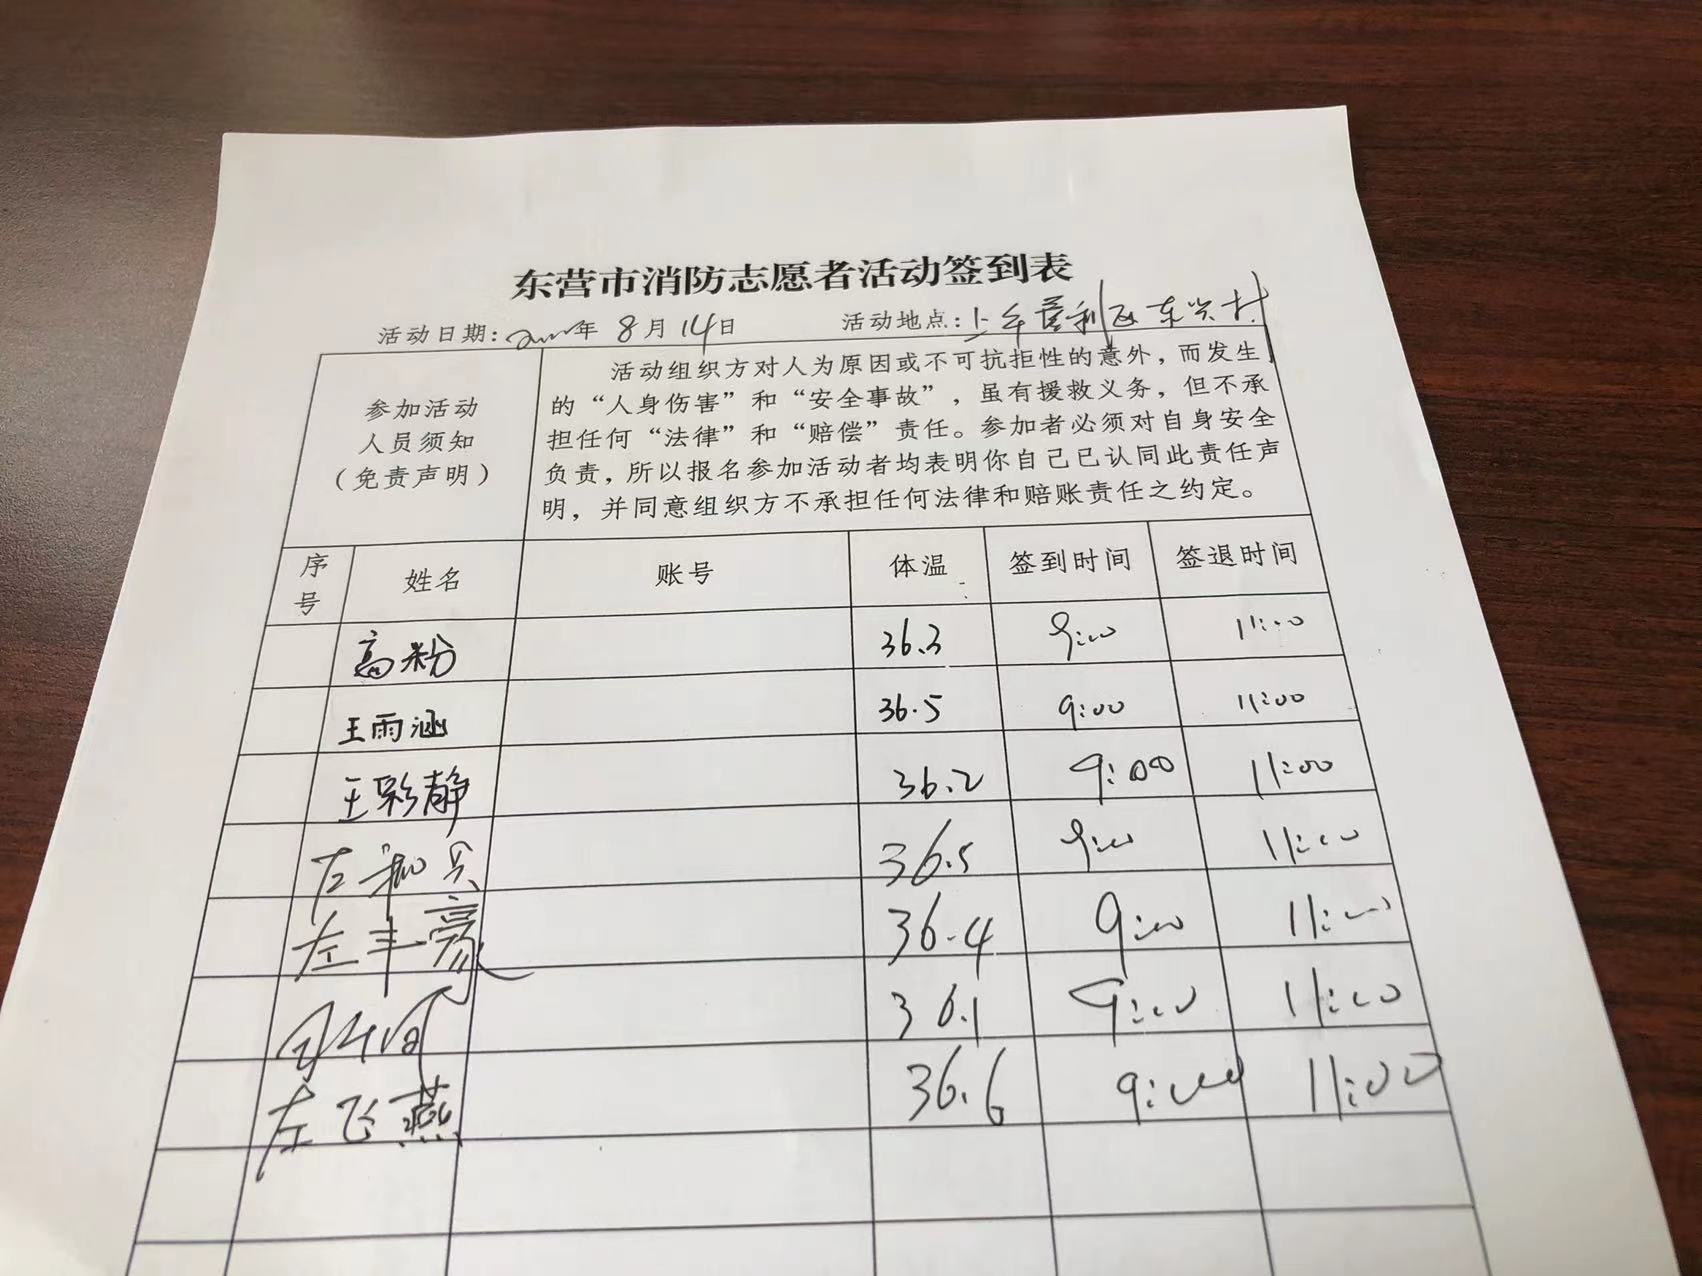 东营市消防志愿者活动签到表
活动日期: 年 8月14日 活动地点: 利区东兴村
参加活动
人员须知
（免责声明）
活动组织方对人为原因或不可抗拒性的意外，而发生
的“人身伤害”和“安全事故”，虽有援救义务，但不承
担任何“法律”和“赔偿”责任。参加者必须对自身安全
负责，所以报名参加活动者均表明你自己已认同此责任声
明，并同意组织方不承担任何法律和赔账责任之约定。
序号 姓名 账号 体温 签到时间 签退时间
高粉 36.3 9:00 11:00
王雨涵 36.5 9:00 11:00
王彩静 36.2 9:00 11:00
左 36.5 9:00 11:00
左丰豪 36.4 9:00 11:00
36.1 9:00 11:00
左飞燕 36.6 9:00 11:00